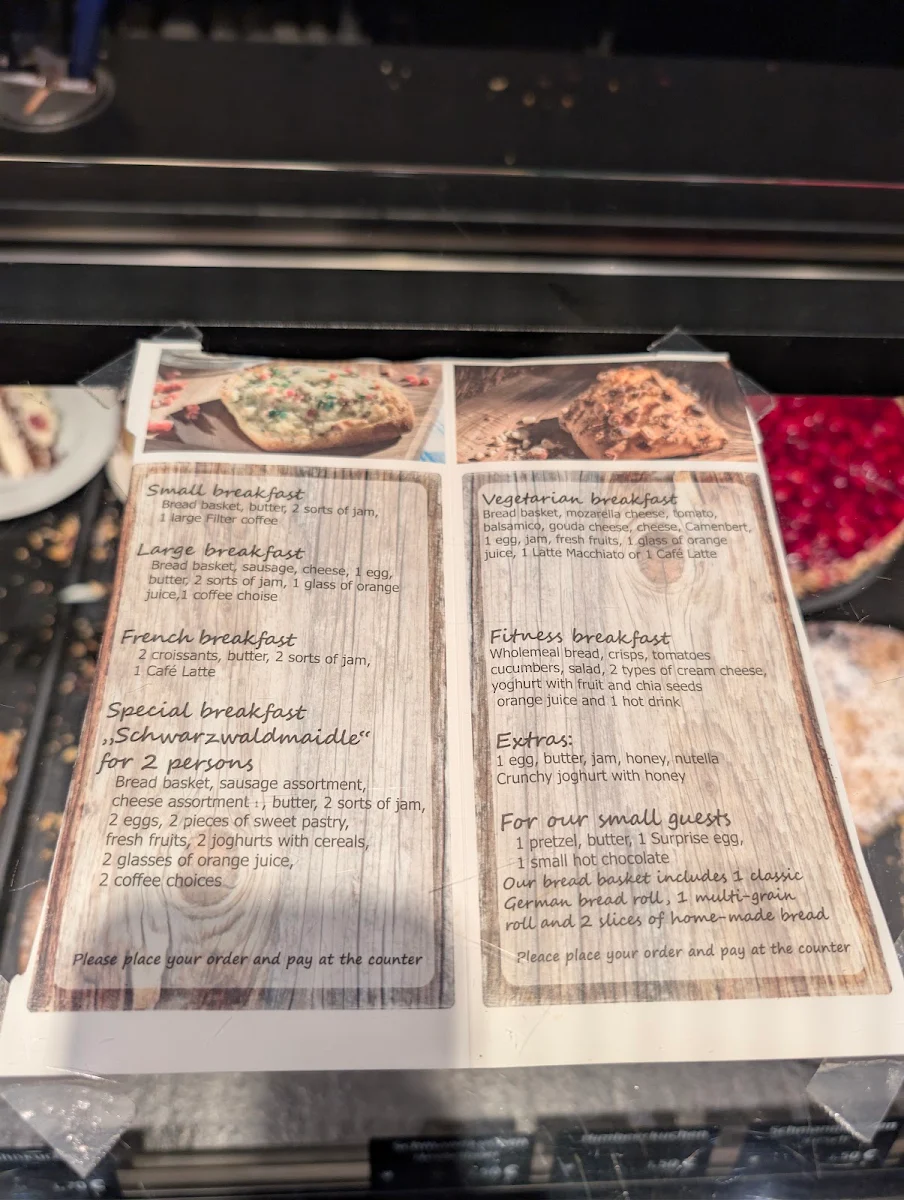 Small breakfast
Bread basket, butter, 2 sorts of jam,
1 large Filter coffee
Large breakfast
Bread basket, sausage, cheese, 1 egg,
butter, 2 sorts of jam, 1 glass of orange
juice,1 coffee choise
French breakfast
2 croissants, butter, 2 sorts of jam,
1 Café Latte
Special breakfast
„Schwarzwaldmaidle“
for 2 persons
Bread basket, sausage assortment,
cheese assortment :, butter, 2 sorts of jam,
2 eggs, 2 pieces of sweet pastry,
fresh fruits, 2 joghurts with cereals,
2 glasses of orange juice,
2 coffee choices
Please place your order and pay at the counter
Vegetarian breakfast
Bread basket, mozarella cheese, tomato,
balsamico, gouda cheese, cheese, Camenbert,
1 egg, jam, fresh fruits, 1 glass of orange
juice, 1 Latte Macchiato or 1 Café Latte
Fitness breakfast
Wholemeal bread, crisps, tomatoes
cucumbers, salad, 2 types of cream cheese,
yoghurt with fruit and chia seeds
orange juice and 1 hot drink
Extras:
1 egg, butter, jam, honey, nutella
Crunchy joghurt with honey
For our small guests
1 pretzel, butter, 1 Surprise egg,
1 small hot chocolate
Our bread basket includes 1 classic
German bread roll, 1 multi-grain
roll and 2 slices of home-made bread
Pleace place your order and pay at the counter